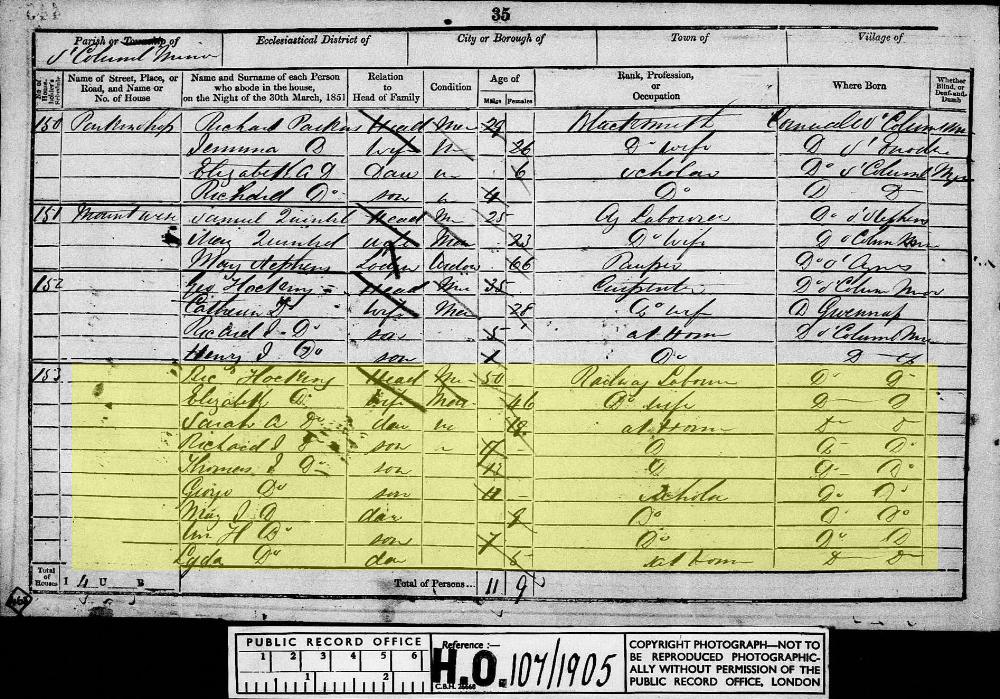 35
Parish or Township of Ecclesiastical District of City or Borough of Town of Village of
St Columb Minor
No. of House-holder's Schedule Name of Street, Place, or Road, and Name or No. of House Name and Surname of each Person who abode in the house, on the Night of the 30th March, 1851 Relation to Head of Family Condition Age of Males Females Rank, Profession, or Occupation Where Born Whether Blind, or Deaf-and-Dumb
150 Richard Parkin Head Mar 29 Blacksmith Cornwall St Columb
Jemima D wife 26 Do wife D St Enoder
Elizabeth A D Dau 6 Scholar Do St Columb
Richard Do son 4 Do D D
151 Samuel Head 25 Ag Labourer Do St Stephens
Mary wife Mar 23 Do Wife Do Columb
Mary Stephens Widow 66 Pauper Do St Agnes
152 Geo Hocking Head Mar 35 Carpenter Do St Columb Minor
Do wife Mar 28 Do wife D Gwennap
Richard J Do son 5 at Home Do St Columb
Henry J Do son 1 Do D
153 Ric Hocking Head Mar 50 Railway Labourer Do Do
Elizabeth Do wife Mar 46 Do wife D D
Sarah A Do dau un 18 at Home D D
Richard J D son 17 D D Do
Thomas J Do son 12 D Do Do
George Do son 11 Scholar Do Do
Mary J D dau 9 Do Do Do
Wm H Do son 7 Do Do D
Lydia Do da 5 at home D D
Total of Houses I 4 U B Total of Persons... 11 9
PUBLIC RECORD OFFICE
1 2 3 4 5 6
1 2
Reference :—
H.O. 107/1905
COPYRIGHT PHOTOGRAPH—NOT TO
BE REPRODUCED PHOTOGRAPHIC-
ALLY WITHOUT PERMISSION OF THE
PUBLIC RECORD OFFICE, LONDON